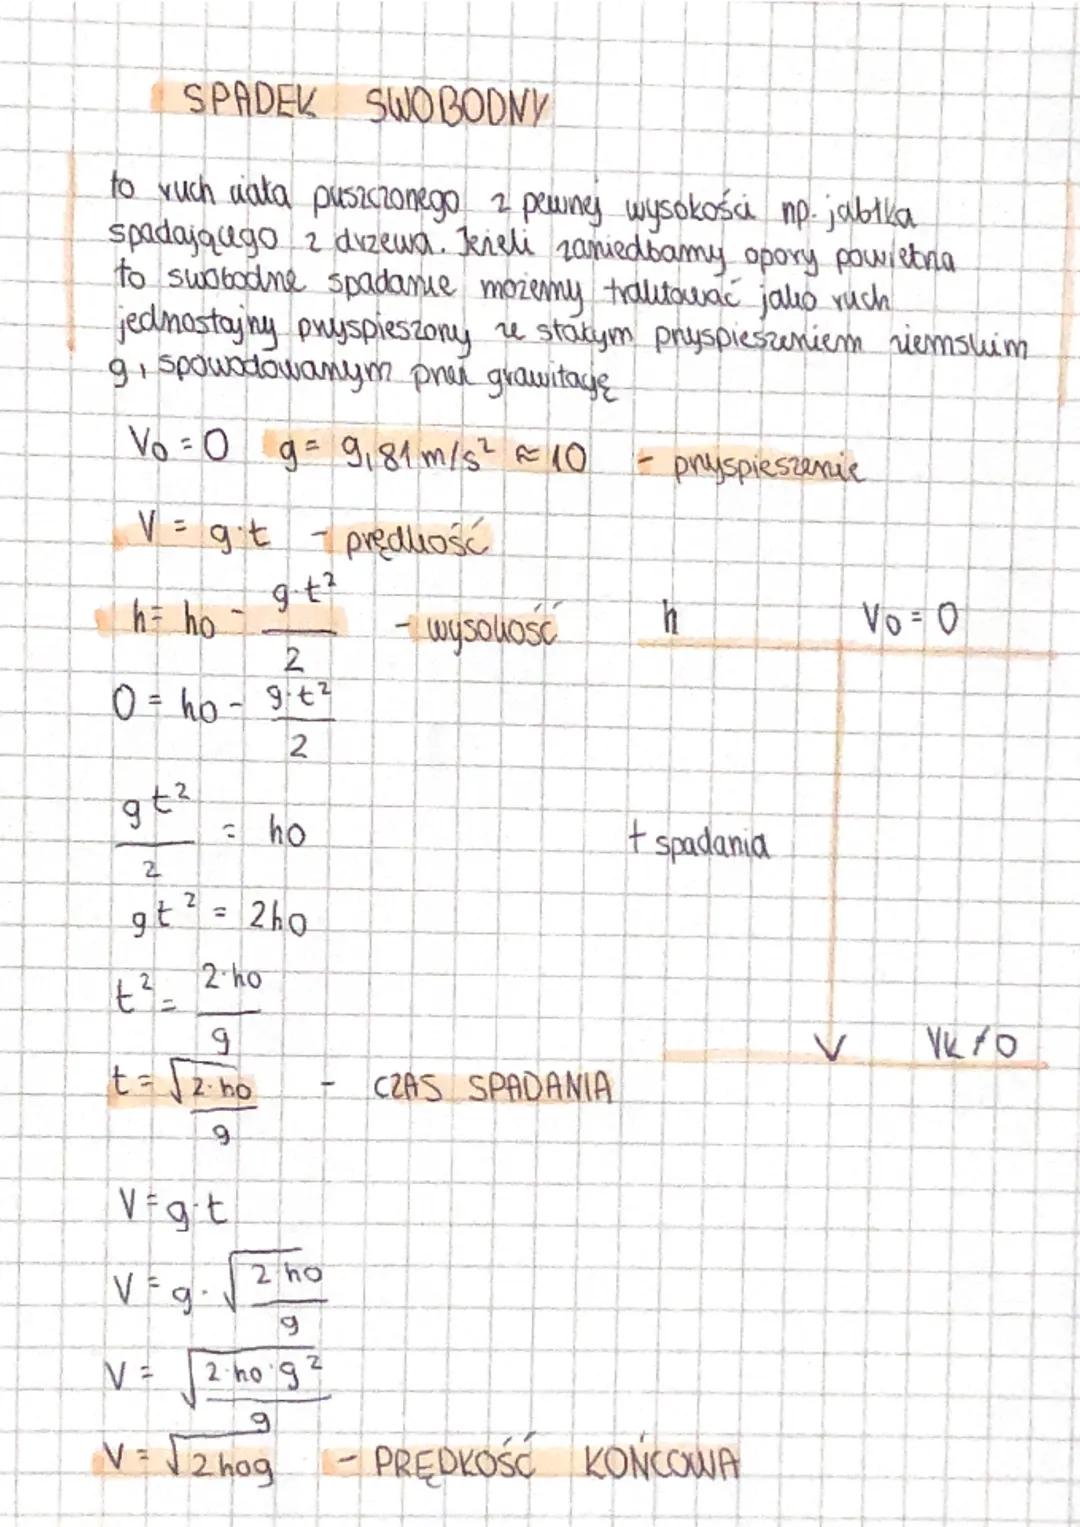 SPADEK SWOBODNY
to ruch ciała puszczonego z pewnej wysokości np. jabłka
spadającego z drzewa. Jeżeli zaniedbamy opory powietrza
to swobodne spadanie możemy traktować jako ruch
jednostajny przyspieszony ze stałym przyspieszeniem ziemskim
g, spowodowanym przez grawitację
V0 = 0 g = 9,81 m/s² ≈ 10 - przyspieszenie
V = g·t - prędkość
h = h0 - g·t²/2 - wysokość
h V0 = 0
0 = h0 - g·t²/2
gt²/2 = h0
t spadania
gt² = 2h0
t² = 2·h0/g
Vk ≠ 0
t = √2·h0/g - CZAS SPADANIA
V = g·t
V = g·√2h0/g
V = √2·h0·g²/g
V = √2h0g - PRĘDKOŚĆ KOŃCOWA